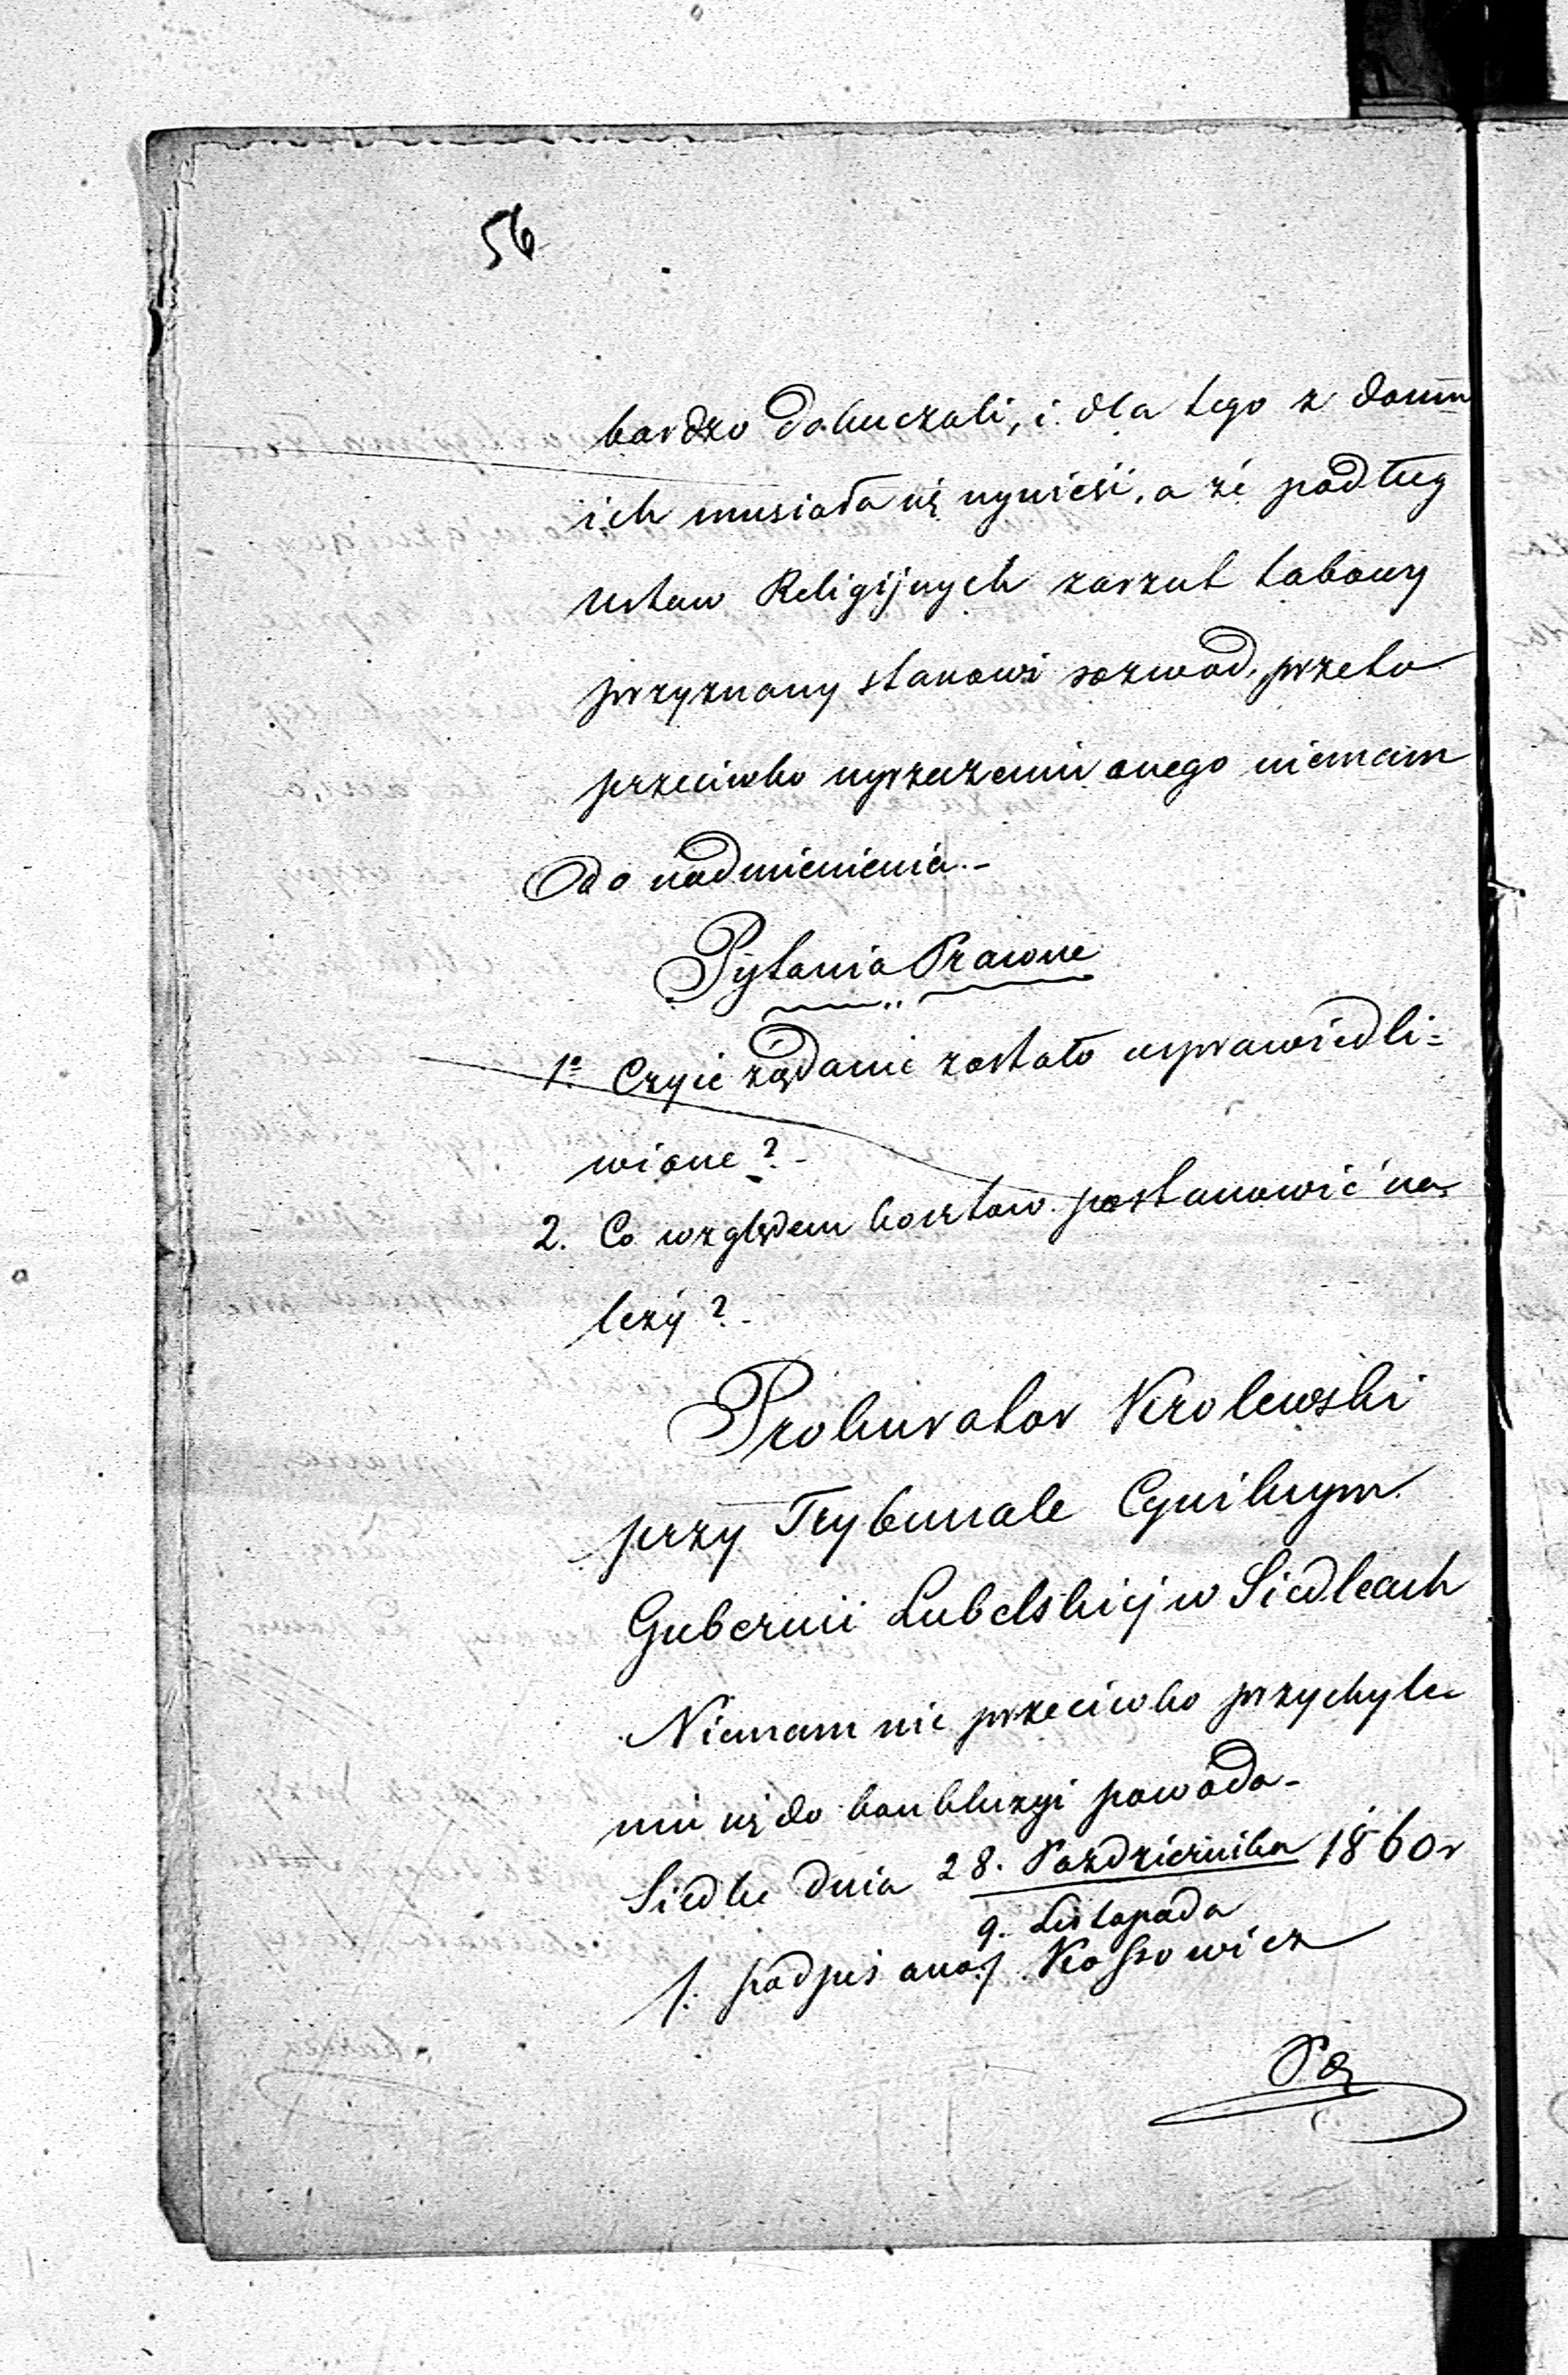 56
bardzo dokuczali, i dla tego z domu
ich musiała się wynieść, a że podług
Ustaw Religijnych zarzut takowy
przyznany stanowi rozwod, przeto
przeciwko wyrzeczeniu onego niemam
do nadmienienia.-
Pytania Prawne
1o Czyie żądanie zostało usprawiedli=
wione?-
2. Co względem kosztow postanowić na-
leży?-
Prokurator Krolewski
przy Trybunale Cywilnym
Gubernii Lubelskiej w Siedlcach
Niemam nic przeciwko przychyle-
niu się do konkluzyi powoda-
Siedlce dnia 28. Pazdziernika 1860 r
9. Listopada
/: podpisano :/ Kossowicz